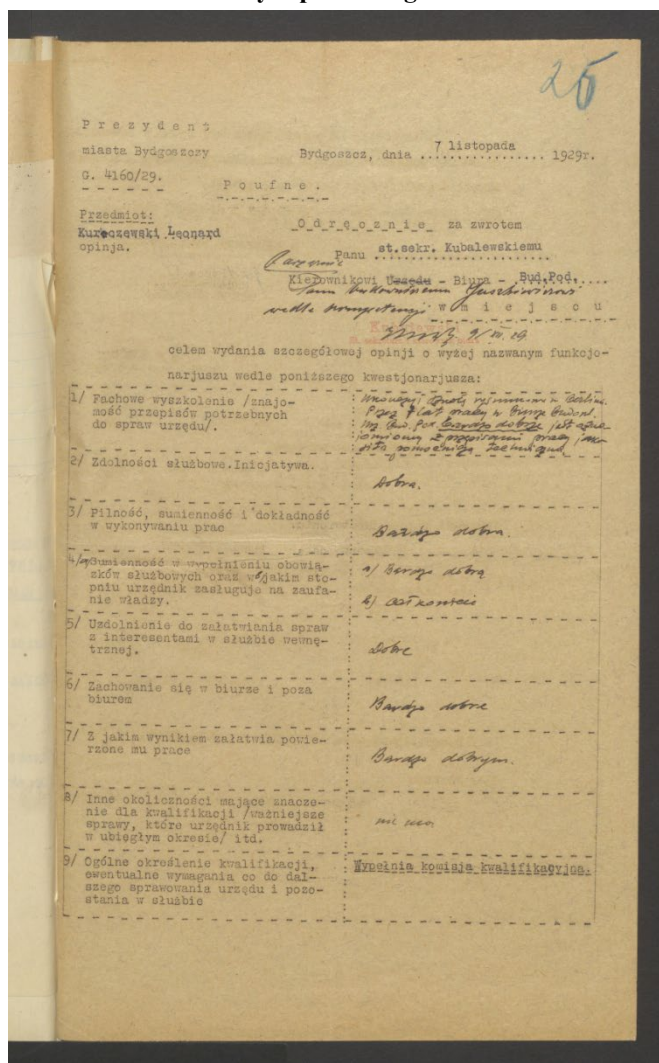 25
Prezydent
miasta Bydgoszczy
Bydgoszcz, dnia 7 listopada 1929r.
G. 4160/29.
Poufne.
Przedmiot:
Kureczewski Leonard
opinja.
Odręcznie za zwrotem
Panu st.sekr. Kubalewskiemu
Kierownikowi Urzędu - Biura - Bud.Pod.
wedle kompetencji w miejscu
celem wydania szczegółowej opinji o wyżej nazwanym funkcjo-
narjuszu wedle poniższego kwestjonarjusza:
1/ Fachowe wyszkolenie /znajo-
mość przepisów potrzebnych
do spraw urzędu/.
Przez 7 lat pracy w
bardzo dobrze jest
z przepisami pracy jako
siła pomocnicza
2/ Zdolności służbowe.Inicjatywa.
Dobra.
3/ Pilność, sumienność i dokładność
w wykonywaniu prac
Bardzo dobra.
4/a/Sumienność w wypełnieniu obowią-
zków służbowych oraz b/jakim sto-
pniu urzędnik zasługuje na zaufa-
nie władzy.
a) Bardzo dobrą
b)
5/ Uzdolnienie do załatwiania spraw
z interesentami w służbie wewnę-
trznej.
Dobre
6/ Zachowanie się w biurze i poza
biurem
Bardzo dobre
7/ Z jakim wynikiem załatwia powie-
rzone mu prace
Bardzo dobrym.
8/ Inne okoliczności mające znacze-
nie dla kwalifikacji /ważniejsze
sprawy, które urzędnik prowadził
w ubiegłym okresie/ itd.
nie ma
9/ Ogólne określenie kwalifikacji,
ewentualne wymagania co do dal-
szego sprawowania urzędu i pozo-
stania w służbie
Wypełnia komisja kwalifikacyjna.